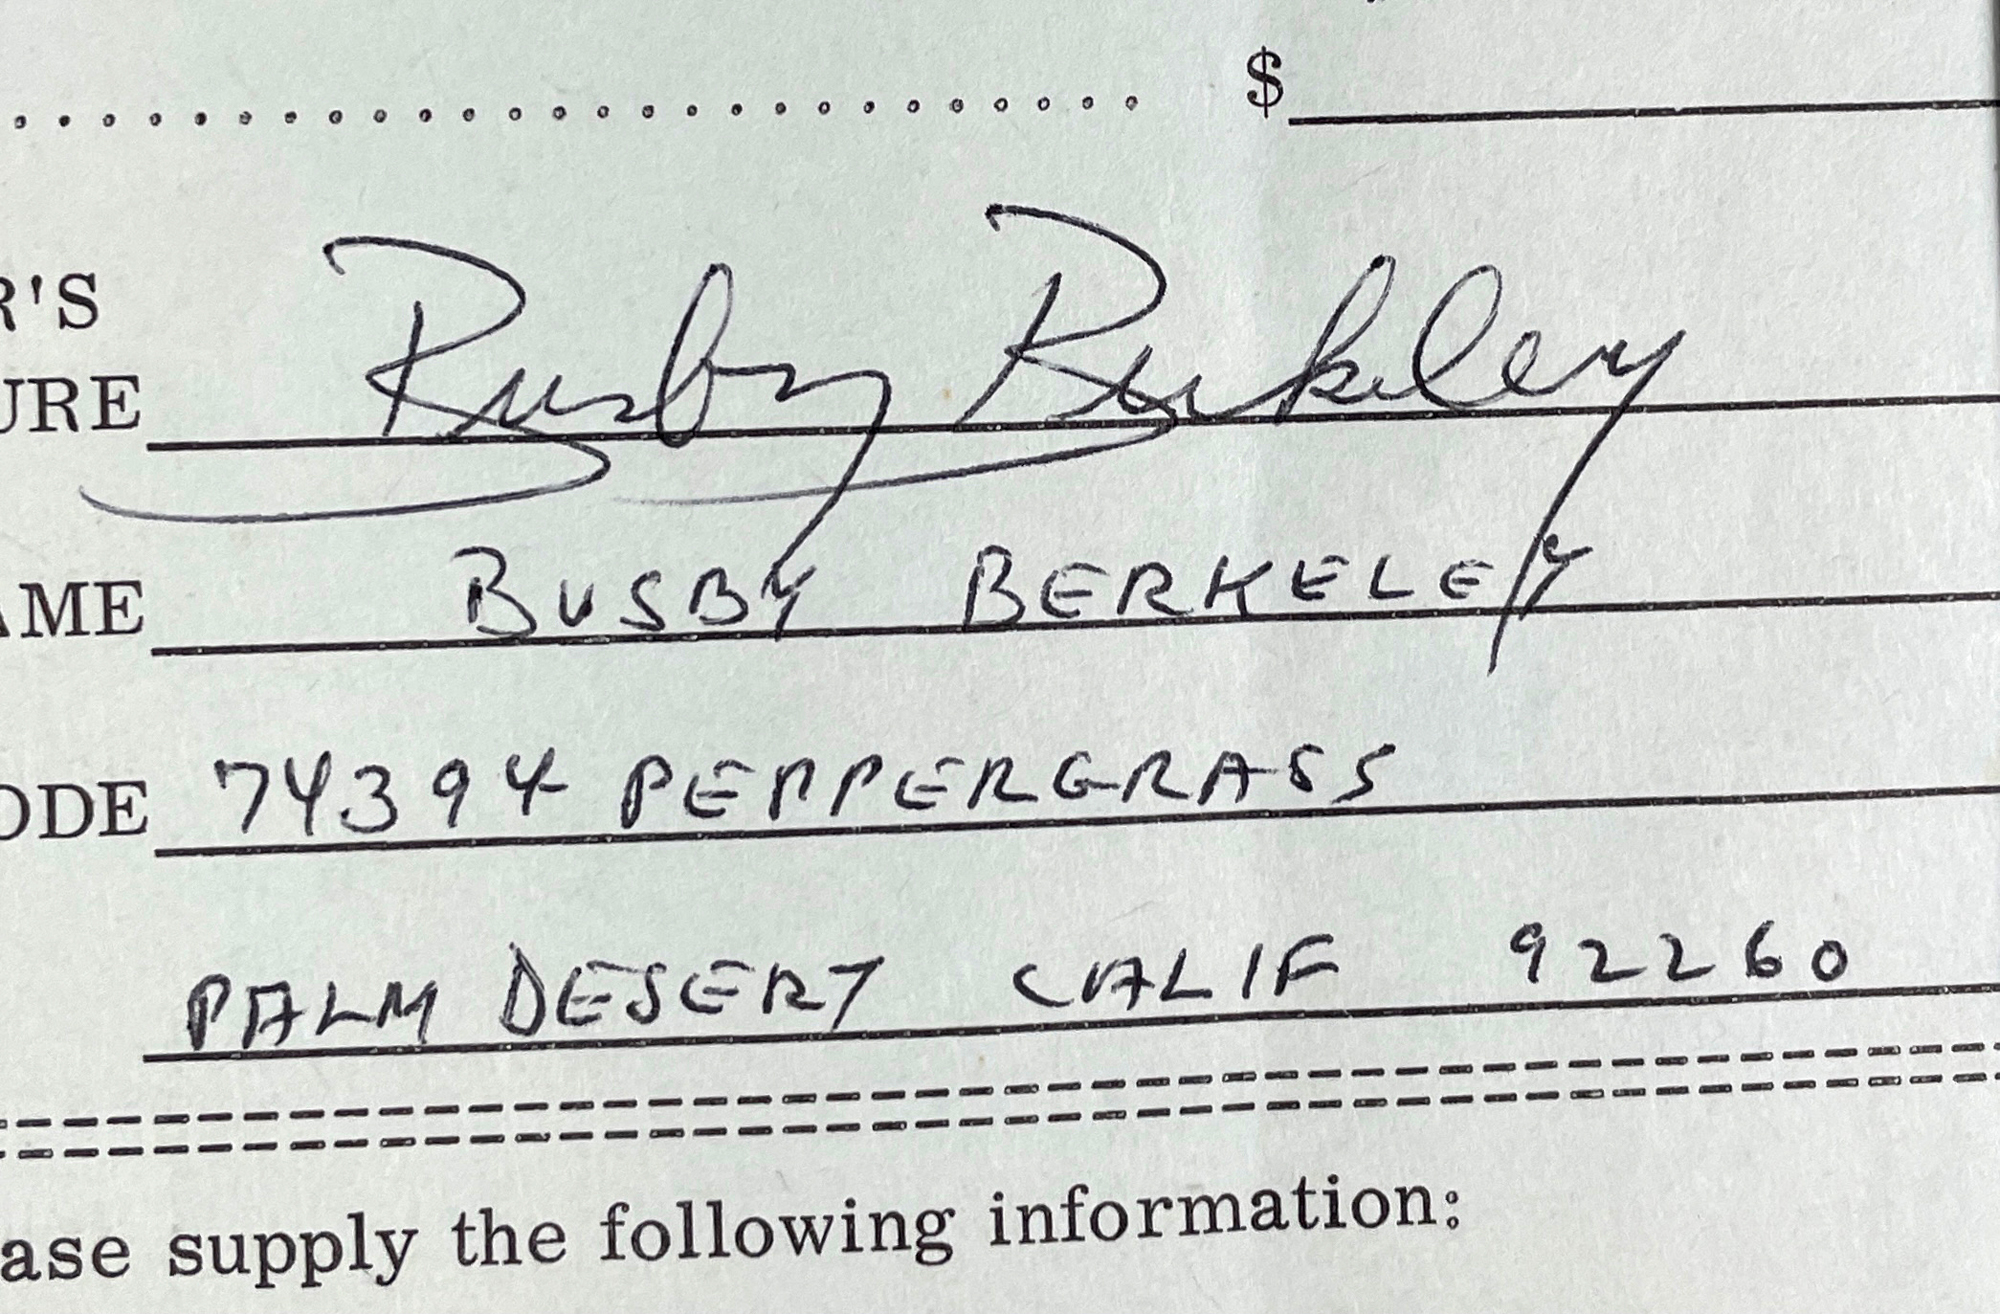 $
R'S
URE Busby Berkeley
AME BUSBY BERKELEY
ODE 74394 PEPPERGRASS
PALM DESERT CALIF 92260
ase supply the following information: